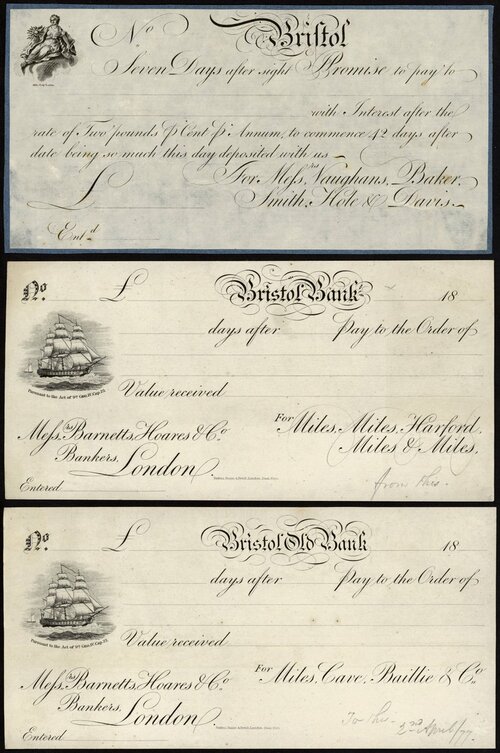 No Bristol
Seven Days after sight Promise to pay to
with Interest after the
rate of Two pounds ⅌ Cent ⅌ Annum, to commence 42 days after
date being so much this day deposited with us
For Messrs Vaughans, Baker,
£ Smith, Hole & Davis.
Entd
No. £ Bristol Bank 18
days after Pay to the Order of
Pursuant to the Act of 9th Geo. IV. Cap. 23.
Value received
For Miles, Miles, Harford,
Messrs Barnetts, Hoares & Co. Miles & Miles,
Bankers,
London
Entered
from this.
No. £ Bristol Old Bank 18
days after Pay to the Order of
Pursuant to the Act of 9th Geo. IV. Cap. 23.
Value received
For Miles, Cave, Baillie & Co.
Messrs Barnetts, Hoares & Co.
Bankers,
London
Entered
To this. 2nd April/77